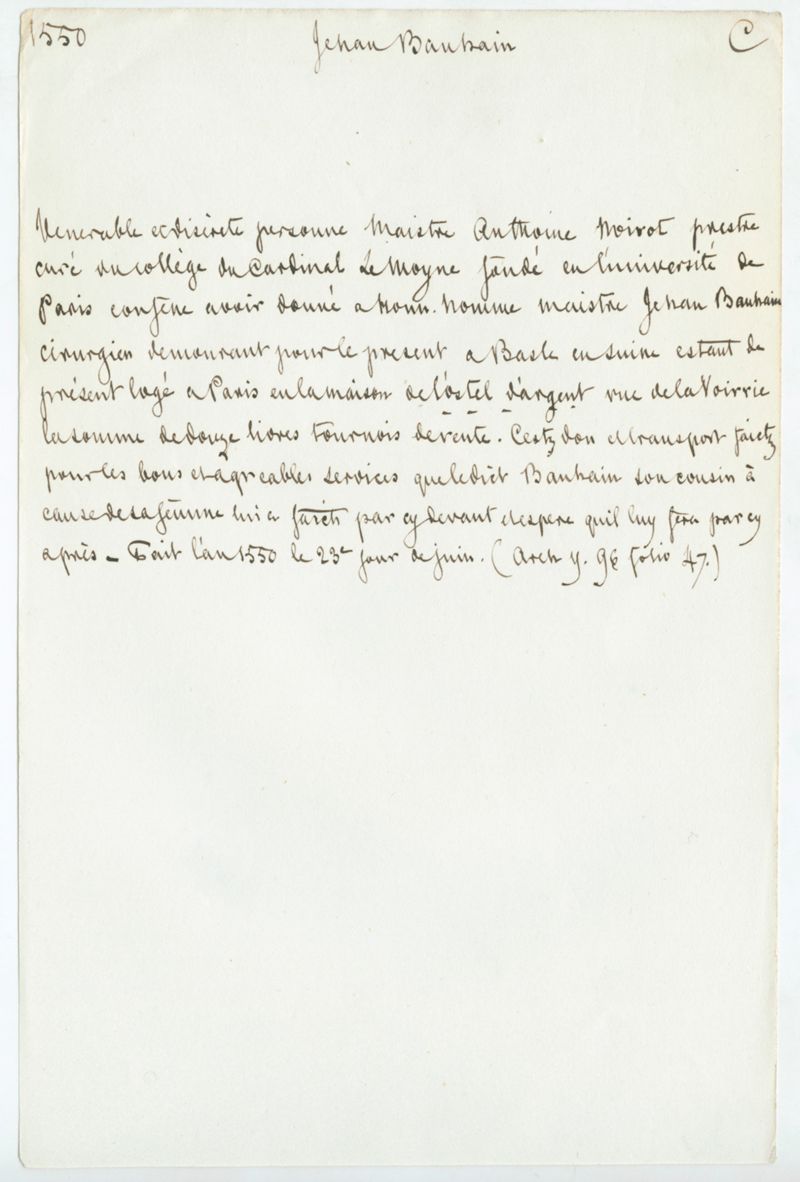 1550 Jehan Bauhain C
Venerable et discrete personne Maistre Anthoine Noirot prestre
curé du collège du Cardinal Le Moyne fondé en l'université de
Paris confene avoir donné a honn. homme maistre Jehan Bauhain
cirurgien demourant pour le present a Basle en Suine estant de
présent logé a Paris en la maison de l'ostel d'argent rue de la Voirrie
la somme de douze livres tournois de rente. Cestz don et transport faictz
pour les bons et agreables services que ledict Bauhain son cousin à
cause de sa femme lui a faicts par cy devant et espere quil luy fera par cy
après – Fait l'an 1550 le 23e jour de juin. (Arch y. 96 folio 47.)